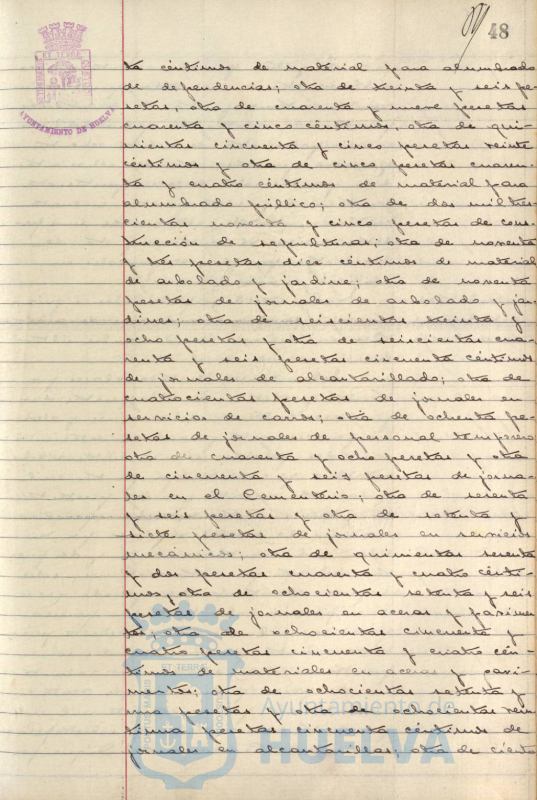 48
AYUNTAMIENTO DE HUELVA
ta céntimos de material para alumbrado
de dependencias; otra de treinta y seis pe-
setas, otra de cuarenta y nueve pesetas
cuarenta y cinco céntimos, otra de qui-
nientas cincuenta y cinco pesetas veinte
céntimos y otra de cinco pesetas cuaren-
ta y cuatro céntimos de material para
alumbrado público; otra de dos mil tres-
cientas noventa y cinco pesetas de cons-
trucción de sepulturas; otra de noventa
y tres pesetas diez céntimos de material
de arbolado y jardine; otra de noventa
pesetas de jornales de arbolado y jar-
dines; otra de seiscientas treinta y
ocho pesetas y otra de seiscientas cua-
renta y seis pesetas cincuenta céntimos
de jornales de alcantarillado; otra de
cuatrocientas pesetas de jornales en
servicios de carros; otra de ochenta pe-
setas de jornales de personal temporero
otra de cuarenta y ocho pesetas y otra
de cincuenta y seis pesetas de jorna-
les en el Cementerio; otra de sesenta
y seis pesetas y otra de setenta y
siete pesetas de jornales en servicios
mecánicos; otra de quinientas sesenta
y dos pesetas cuarenta y cuatro cénti-
mos, otra de ochocientas setenta y seis
pesetas de jornales en aceras y pavimen-
tos, otra de ochocientas cincuenta y
cuatro pesetas cincuenta y cuatro cén-
timos de materiales en aceras y pavi-
mentos; otra de ochocientas setenta y
una pesetas y otra de ochocientas vein
tiuna pesetas cincuenta céntimos de
jornales en alcantarillas; otra de ciento
Ayuntamiento de
HUELVA